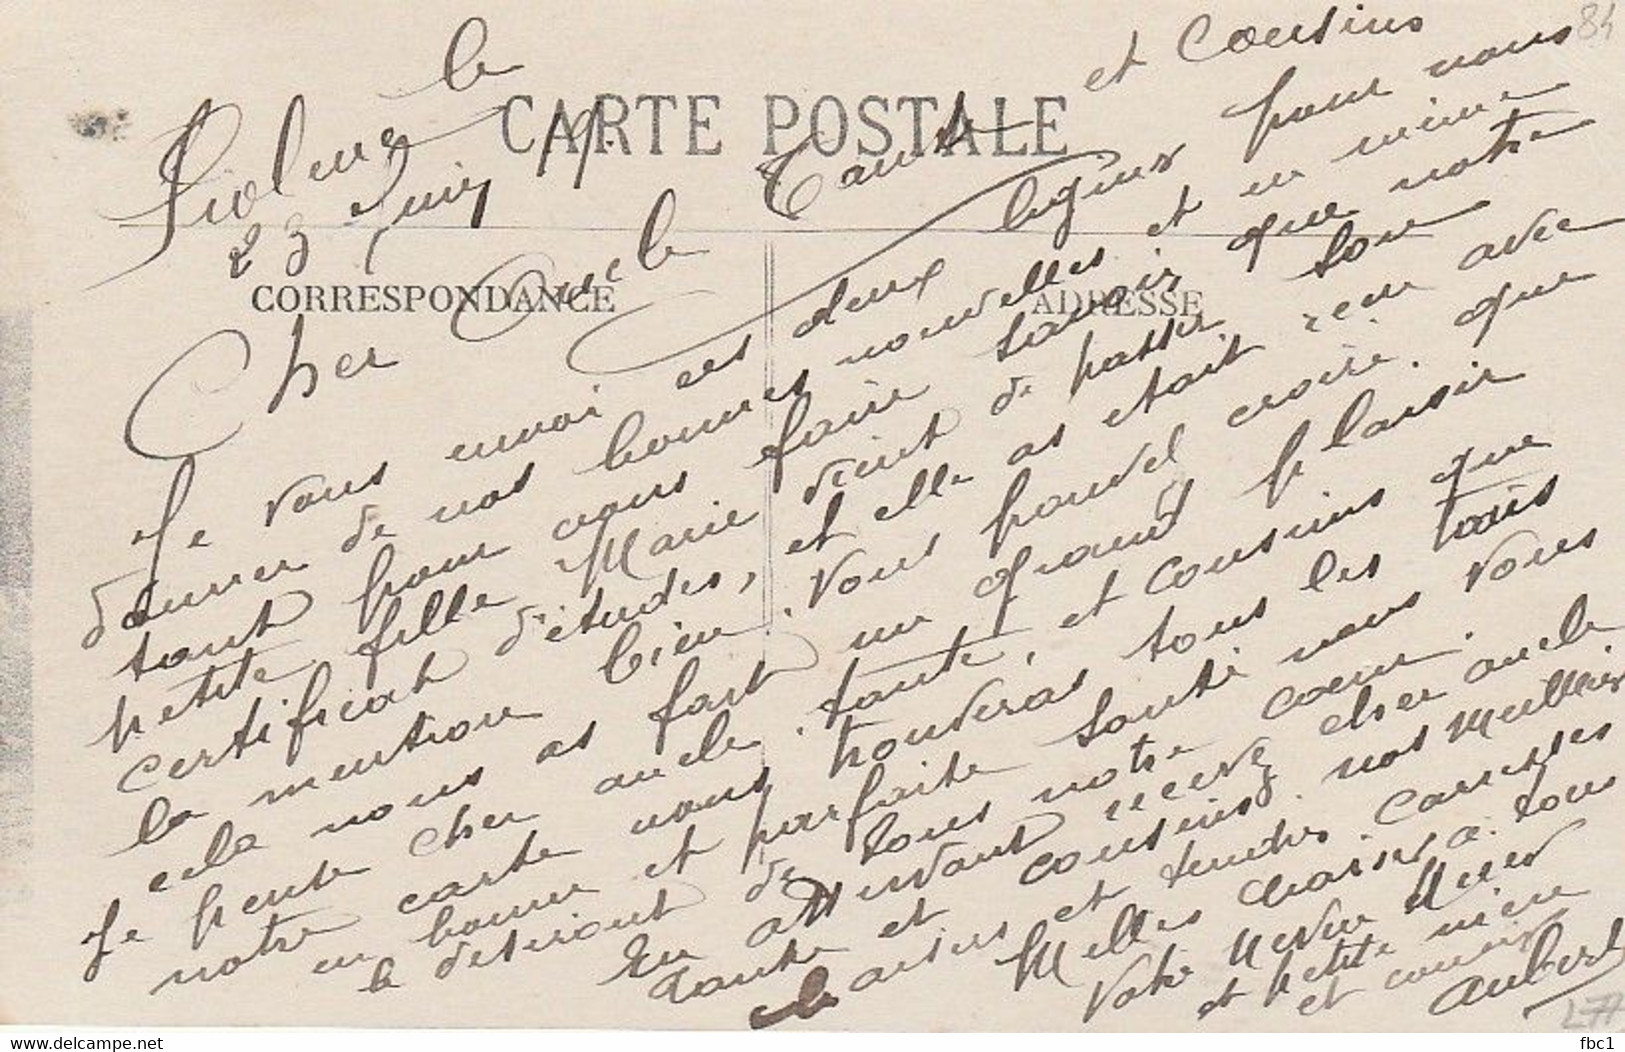 Violme le
23 Juin 19
CARTE POSTALE
CORRESPONDANCE
ADRESSE
Cher Oncle Tante et Cousins
Je vous envoi ces deux lignes pour vous
donner de nos bonnes nouvelles et en même
tant pour vous faire savoir que notre
petite fille Marie vient de passer son
certificat d'études, et elle as etait reçu avec
la mention bien. Vous pouvez croire que
cela nous as fait un grand plaisir
Je pense cher oncle, tante, et cousins que
notre carte vous trouveras tous les tois
en bonne et parfaite santé nous vous
le desiront de tous notre coeur.
En attendant recevez cher oncle
tante et cousins nos meilleurs
baisers et tendres caresses
Milles baisers a tous
Votre neveu
et petite nièce
et cousin
Aubert
84
277
fbc1